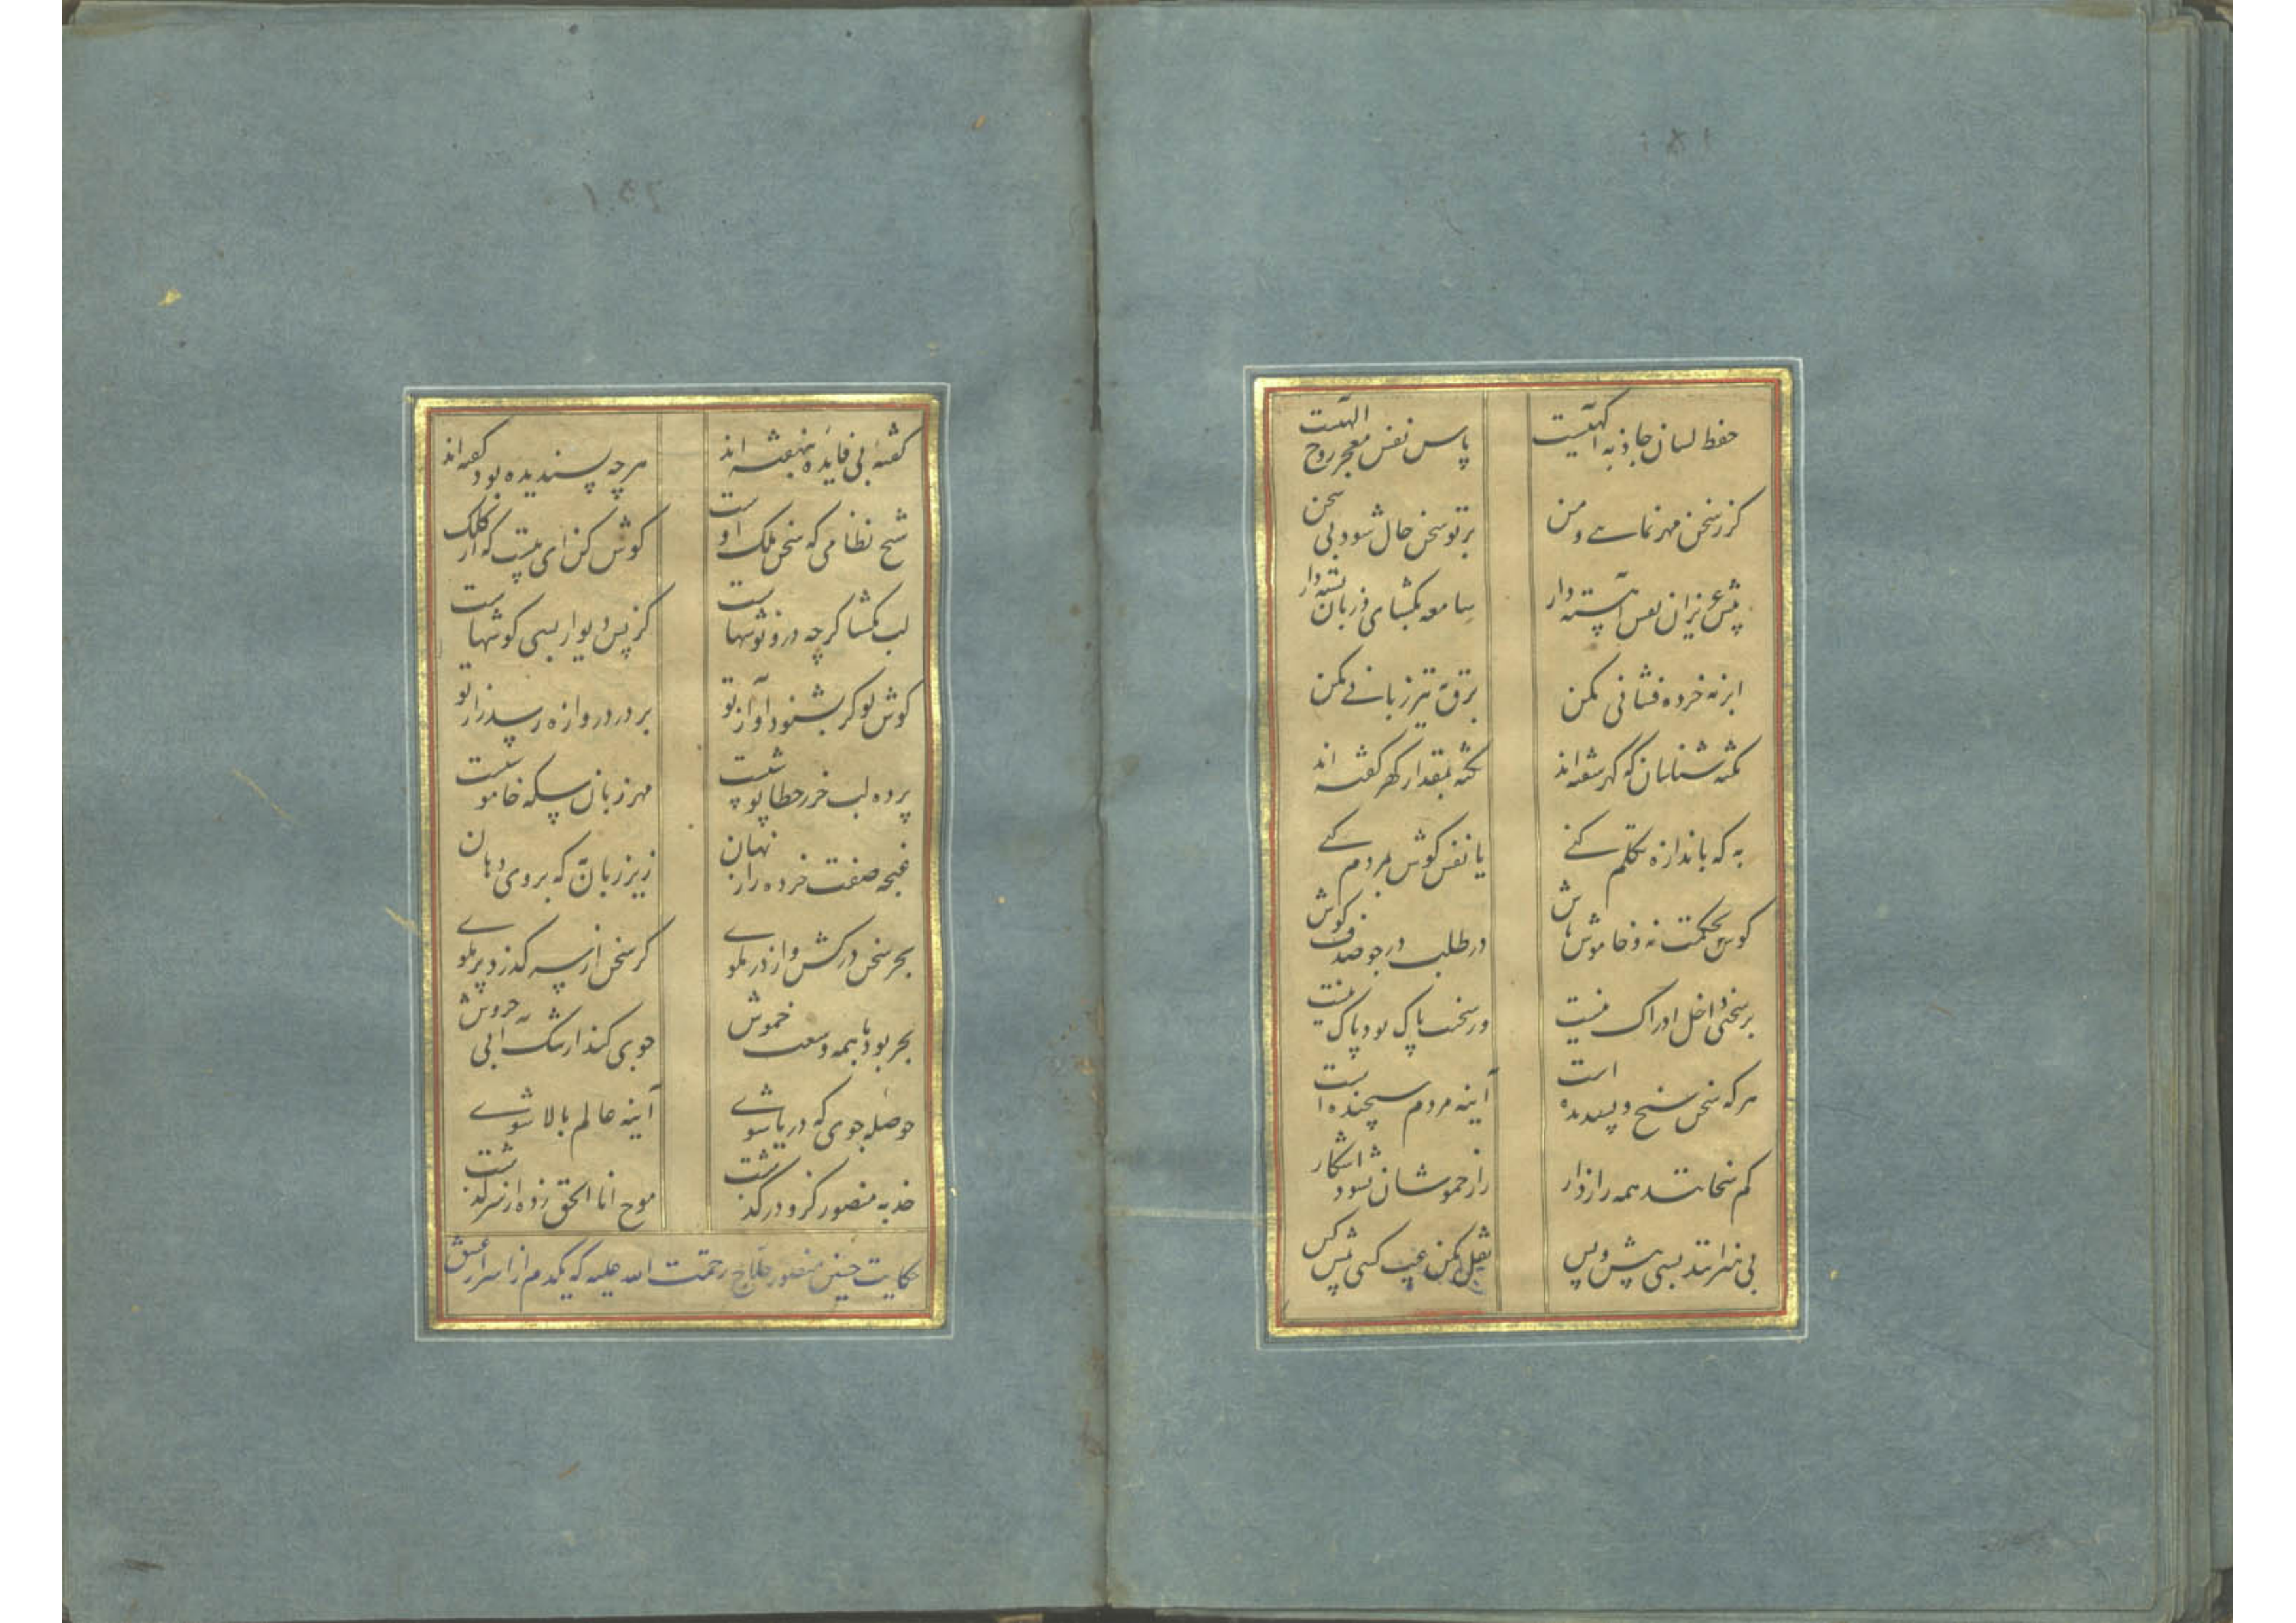 حفظ لسان جاذبه آگهیست
پاس نفس معجز روح اللهیست
گر ز سخن مهر نمایی دهن
بر تو سخن حال شود بی سخن
پیش عزیزان نفس آهسته دار
سامعه بگشای و زبان بسته دار
ابر نه خرده فشانی مکن
برق نه تیز زبانی مکن
نکته شناسان که گهر سفته اند
نکته بمقدار گهر گفته اند
به که باندازه تکلم کنی
یا نفس گوش بمردم کنی
گوش بحکمت نه و خاموش باش
در طلب در چو صدف گوش
بر سخنی داخل ادراک نیست
ور سخنت پاک بود پاک نیست
هر که سخن سنج و پسندیده است
آینه مردم سنجیده است
کم سخنانند همه رازدار
راز خموشان نشود آشکار
بی هنرانند بسی پیش و پس
نقل مکن عیب کسی پیش کس
گفته بی فایده بنهفته اند
هرچه پسندیده بود گفته اند
شیخ نظامی که سخن ملک اوست
گوش کن ای مست که از کلک
لب مگشا گرچه درو نوشهاست
کز پس دیوار بسی گوشهاست
گوش تو گر بشنود آواز تو
بر در دروازه رسد راز تو
پرده لب خرز خطاپوشیست
مهر زبان سکه خاموشیست
غنچه صفت خرده راز نهان
زیر زبان نه که بروی دهان
بحر سخن درکش و از در ملوی
گر سخن از سر گذرد پر ملوی
بحر بود با همه وسعت خموش
جوی کند از تنک آبی خروش
حوصله جوی که دریا شوی
آینه عالم بالا شوی
جذبه منصور کزو درگذشت
موج انا الحق زده از سر گذشت
حکایت حسین منصور حلاج رحمت الله علیه که یکدم از اسرار عشق